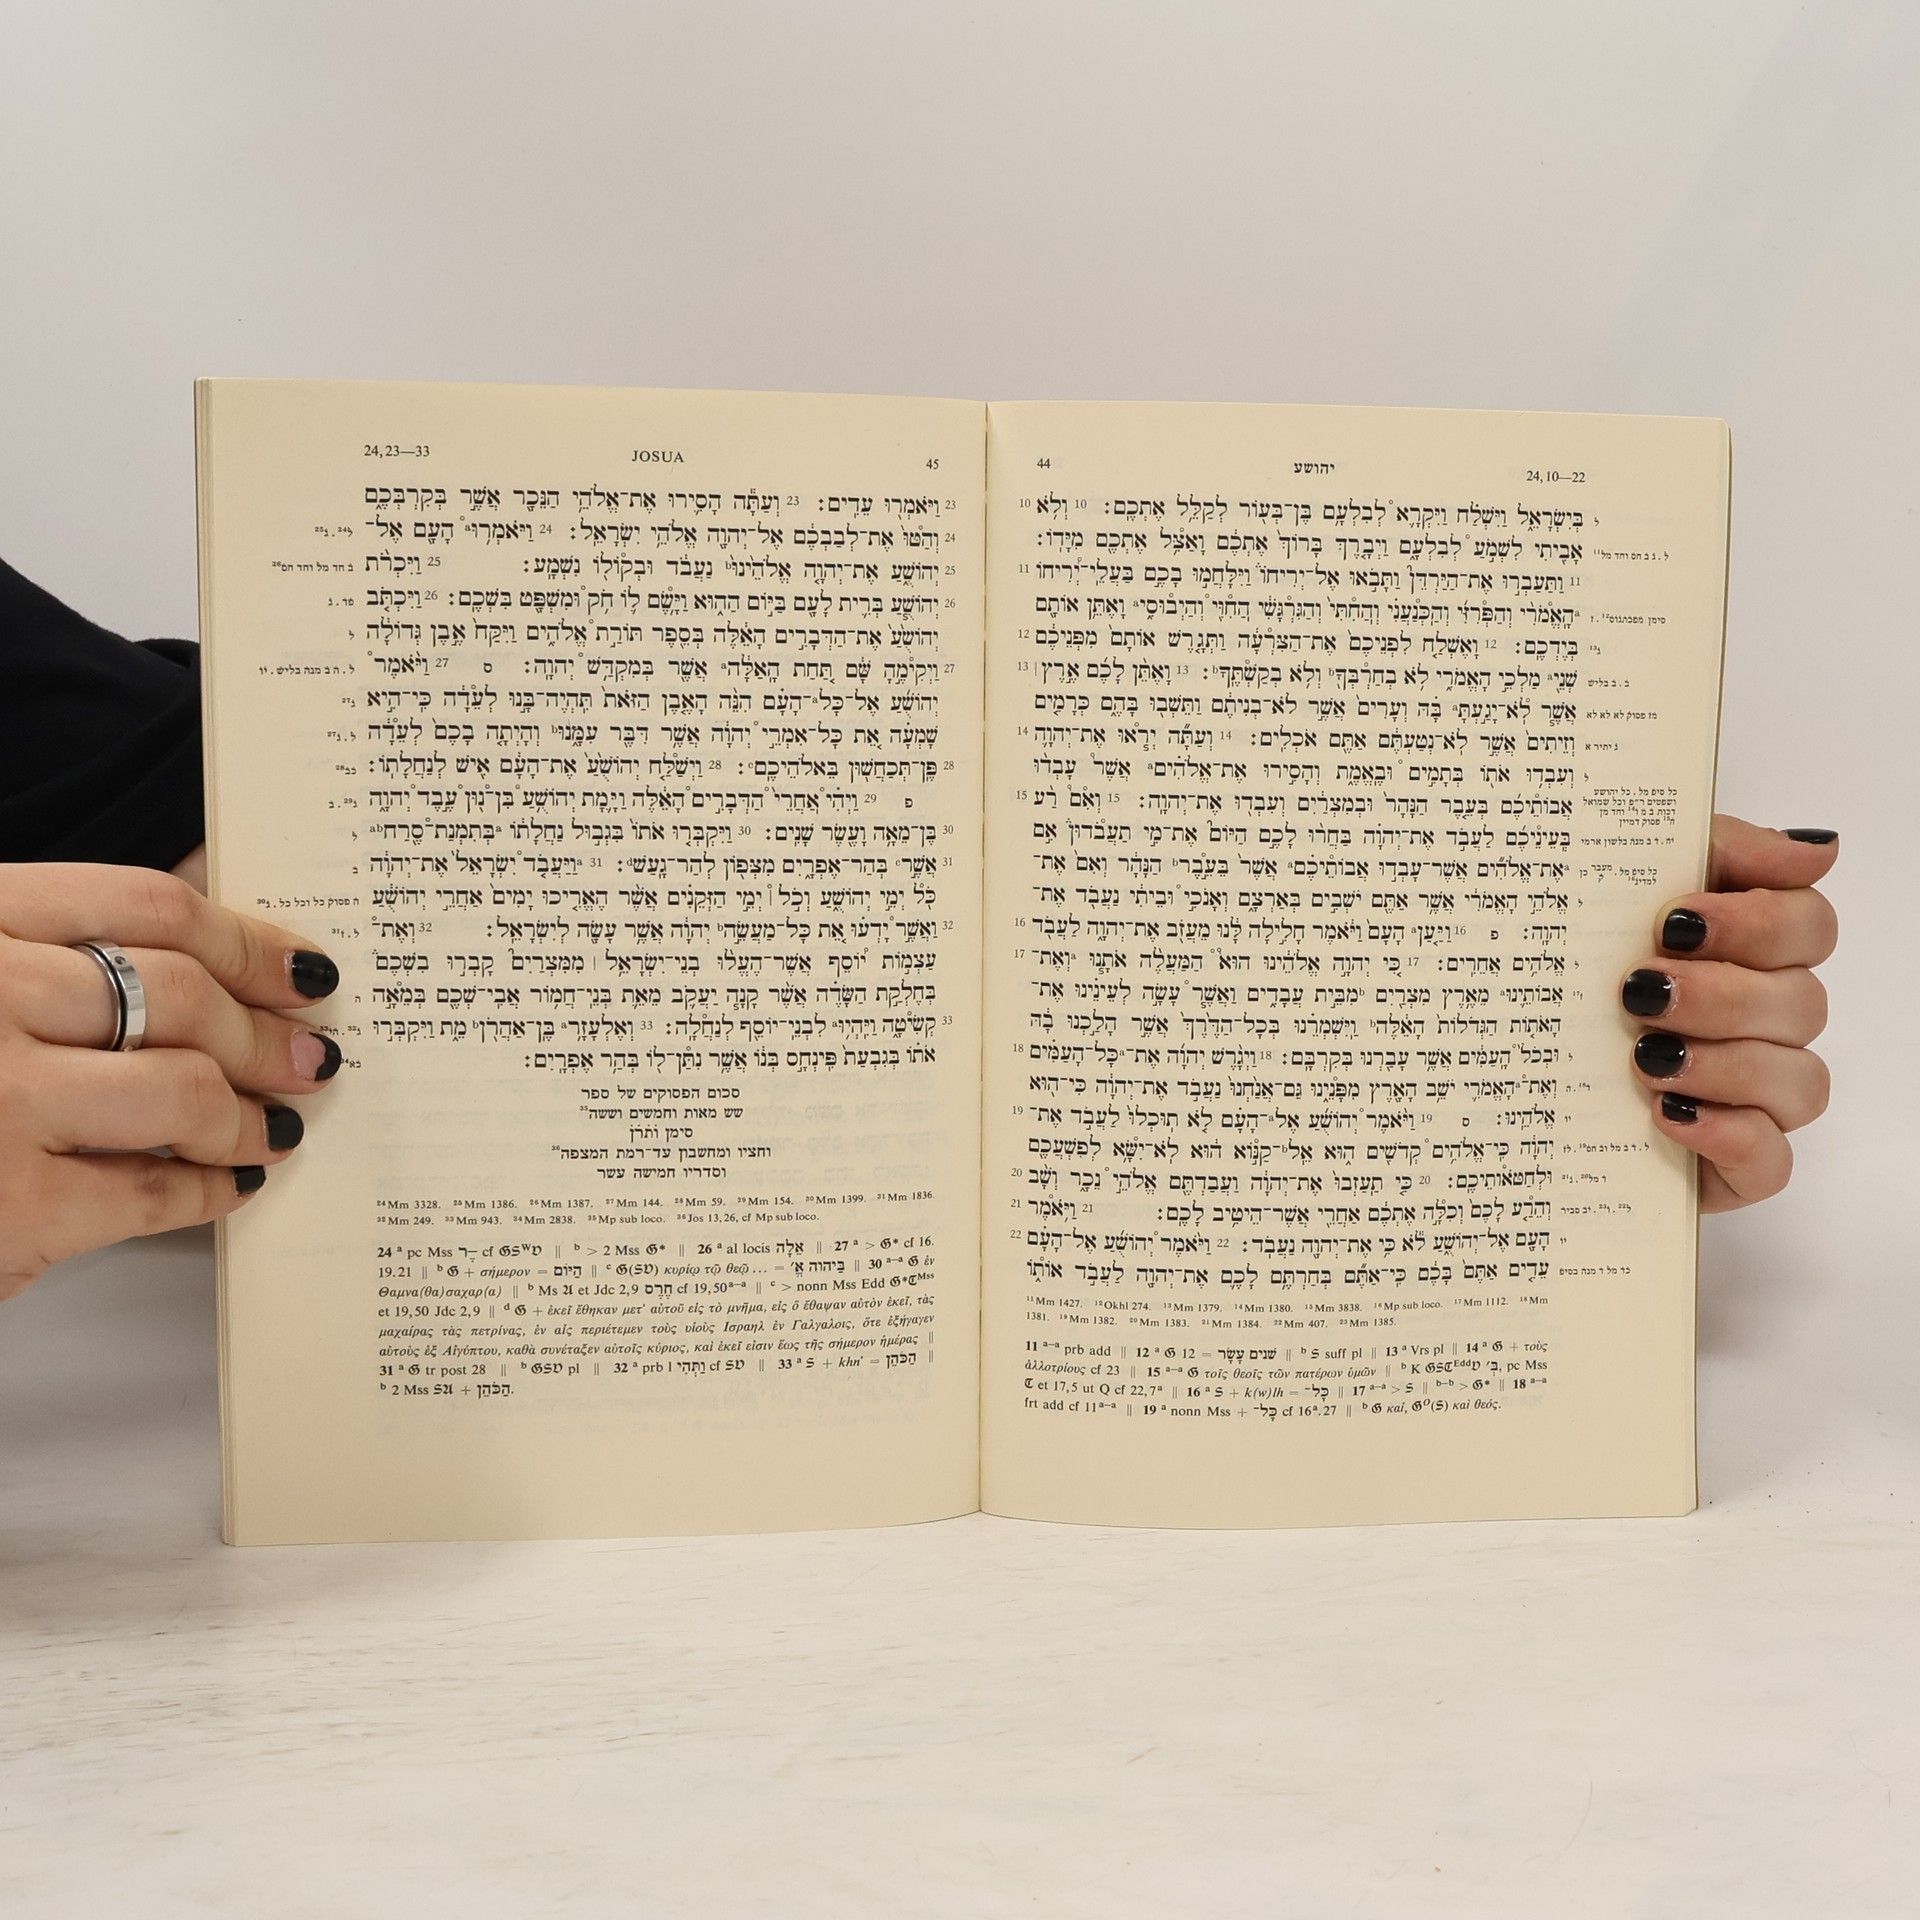 44 יהושע 24,10—22
בְּיִשְׂרָאֵל וַיִּשְׁלַח וַיִּקְרָא לְבִלְעָם בֶּן־בְּעוֹר לְקַלֵּל אֶתְכֶם׃ 10 וְלֹא 10
אָבִיתִי לִשְׁמֹעַ לְבִלְעָם וַיְבָרֶךְ בָּרוֹךְ אֶתְכֶם וָאַצִּל אֶתְכֶם מִיָּדוֹ׃
11 וַתַּעַבְרוּ אֶת־הַיַּרְדֵּן וַתָּבֹאוּ אֶל־יְרִיחוֹ וַיִּלָּחֲמוּ בָכֶם בַּעֲלֵי־יְרִיחוֹ 11
ᵃהָאֱמֹרִי וְהַפְּרִזִּי וְהַכְּנַעֲנִי וְהַחִתִּי וְהַגִּרְגָּשִׁי הַחִוִּי וְהַיְבוּסִיᵃ וָאֶתֵּן אוֹתָם
בְּיֶדְכֶם׃ 12 וָאֶשְׁלַח לִפְנֵיכֶם אֶת־הַצִּרְעָה וַתְּגָרֶשׁ אוֹתָם מִפְּנֵיכֶם 12
שְׁנֵיᵃ מַלְכֵי הָאֱמֹרִי לֹא בְחַרְבְּךָᵇ וְלֹא בְקַשְׁתֶּךָᵇ׃ 13 וָאֶתֵּן לָכֶם אֶרֶץ׀ 13
אֲשֶׁר לֹא־יָגַעְתָּᵃ בָּהּ וְעָרִים אֲשֶׁר לֹא־בְנִיתֶם וַתֵּשְׁבוּ בָּהֶם כְּרָמִים
וְזֵיתִים אֲשֶׁר לֹא־נְטַעְתֶּם אַתֶּם אֹכְלִים׃ 14 וְעַתָּה יְראוּ אֶת־יְהוָה 14
וְעִבְדוּ אֹתוֹ בְּתָמִים וּבֶאֱמֶת וְהָסִירוּ אֶת־אֱלֹהִיםᵃ אֲשֶׁר עָבְדוּ
אֲבוֹתֵיכֶם בְּעֵבֶר הַנָּהָר וּבְמִצְרַיִם וְעִבְדוּ אֶת־יְהוָה׃ 15 וְאִם רַע 15
בְּעֵינֵיכֶם לַעֲבֹד אֶת־יְהוָה בַּחֲרוּ לָכֶם הַיּוֹם אֶת־מִי תַעֲבֹדוּן אִם
ᵃאֶת־אֱלֹהִים אֲשֶׁר־עָבְדוּ אֲבוֹתֵיכֶםᵃ אֲשֶׁר בְּעֵבֶרᵇ הַנָּהָר וְאִם אֶת־
אֱלֹהֵי הָאֱמֹרִי אֲשֶׁר אַתֶּם יֹשְׁבִים בְּאַרְצָם וְאָנֹכִי וּבֵיתִי נַעֲבֹד אֶת־
יְהוָה׃ פ 16 וַיַּעַןᵃ הָעָם וַיֹּאמֶר חָלִילָה לָּנוּ מֵעֲזֹב אֶת־יְהוָה לַעֲבֹד 16
אֱלֹהִים אֲחֵרִים׃ 17 כִּי יְהוָה אֱלֹהֵינוּ הוּא הַמַּעֲלֶה אֹתָנוּ ᵃוְאֶת־ 17
אֲבוֹתֵינוּᵃ מֵאֶרֶץ מִצְרַיִם ᵇמִבֵּית עֲבָדִים וַאֲשֶׁר עָשָׂה לְעֵינֵינוּ אֶת־
הָאֹתוֹת הַגְּדֹלוֹת הָאֵלֶּהᵇ וַיִּשְׁמְרֵנוּ בְּכָל־הַדֶּרֶךְ אֲשֶׁר הָלַכְנוּ בָהּ
וּבְכֹל הָעַמִּים אֲשֶׁר עָבַרְנוּ בְּקִרְבָּם׃ 18 וַיְגָרֶשׁ יְהוָה אֶת־ᵃכָּל־הָעַמִּים 18
וְאֶת־ᵃהָאֱמֹרִי יֹשֵׁב הָאָרֶץ מִפָּנֵינוּ גַּם־אֲנַחְנוּ נַעֲבֹד אֶת־יְהוָה כִּי־הוּא
אֱלֹהֵינוּ׃ ס 19 וַיֹּאמֶר יְהוֹשֻׁעַ אֶל־ᵃהָעָם לֹא תוּכְלוּ לַעֲבֹד אֶת־ 19
יְהוָה כִּי־אֱלֹהִים קְדֹשִׁים הוּא אֵל־ᵇקַנּוֹא הוּא לֹא־יִשָּׂא לְפִשְׁעֲכֶם
וּלְחַטֹּאותֵיכֶם׃ 20 כִּי תַעַזְבוּ אֶת־יְהוָה וַעֲבַדְתֶּם אֱלֹהֵי נֵכָר וְשָׁב 20
וְהֵרַע לָכֶם וְכִלָּה אֶתְכֶם אַחֲרֵי אֲשֶׁר־הֵיטִיב לָכֶם׃ 21 וַיֹּאמֶר 21
הָעָם אֶל־יְהוֹשֻׁעַ לֹא כִּי אֶת־יְהוָה נַעֲבֹד׃ 22 וַיֹּאמֶר יְהוֹשֻׁעַ אֶל־הָעָם 22
עֵדִים אַתֶּם בָּכֶם כִּי־אַתֶּם בְּחַרְתֶּם לָכֶם אֶת־יְהוָה לַעֲבֹד אוֹתוֹ
¹¹Mm 1427. ¹²Okhl 274. ¹³Mm 1379. ¹⁴Mm 1380. ¹⁵Mm 3838. ¹⁶Mp sub loco. ¹⁷Mm 1112. ¹⁸Mm
1381. ¹⁹Mm 1382. ²⁰Mm 1383. ²¹Mm 1384. ²²Mm 407. ²³Mm 1385.
11 ᵃ⁻ᵃ prb add ‖ 12 ᵃ 𝔊 12 = שְׁנֵים עָשָׂר ‖ ᵇ S suff pl ‖ 13 ᵃ Vrs pl ‖ 14 ᵃ 𝔊 + τοὺς
ἀλλοτρίους cf 23 ‖ 15 ᵃ⁻ᵃ 𝔊 τοῖς θεοῖς τῶν πατέρων ὑμῶν ‖ ᵇ K 𝔊S𝕮ᴱᵈᵈ𝔙 בְּ׳, pc Mss
𝕮 et 17,5 ut Q cf 22,7ᵃ ‖ 16 ᵃ S + k(w)lh = כָּל־ ‖ 17 ᵃ⁻ᵃ > S ‖ ᵇ⁻ᵇ > 𝔊* ‖ 18 ᵃ⁻ᵃ
frt add cf 11ᵃ⁻ᵃ ‖ 19 ᵃ nonn Mss + כָּל־ cf 16ᵃ.27 ‖ ᵇ 𝔊 καί, 𝔊ᴼ(S) καὶ θεός.
24,23—33 JOSUA 45
23 וַיֹּאמְרוּ עֵדִים׃ 23 וְעַתָּה הָסִירוּ אֶת־אֱלֹהֵי הַנֵּכָר אֲשֶׁר בְּקִרְבְּכֶם
24 וְהַטּוּ אֶת־לְבַבְכֶם אֶל־יְהוָה אֱלֹהֵי יִשְׂרָאֵל׃ 24 וַיֹּאמְרוּᵃ הָעָם אֶל־
25 יְהוֹשֻׁעַ אֶת־יְהוָה אֱלֹהֵינוּᵇ נַעֲבֹד וּבְקוֹלוֹ נִשְׁמָע׃ 25 וַיִּכְרֹת
26 יְהוֹשֻׁעַ בְּרִית לָעָם בַּיּוֹם הַהוּא וַיָּשֶׂם לוֹ חֹק וּמִשְׁפָּט בִּשְׁכֶם׃ 26 וַיִּכְתֹּב
יְהוֹשֻׁעַ אֶת־הַדְּבָרִים הָאֵלֶּה בְּסֵפֶר תּוֹרַת אֱלֹהִים וַיִּקַּח אֶבֶן גְּדוֹלָה
27 וַיְקִימֶהָ שָּׁם תַּחַת הָאַלָּהᵃ אֲשֶׁר בְּמִקְדַּשׁ יְהוָה׃ ס 27 וַיֹּאמֶר
יְהוֹשֻׁעַ אֶל־כָּל־ᵃהָעָם הִנֵּה הָאֶבֶן הַזֹּאת תִּהְיֶה־בָּנוּ לְעֵדָה כִּי־הִיא
שָׁמְעָה אֵת כָּל־אִמְרֵי יְהוָה אֲשֶׁר דִּבֶּר עִמָּנוּᵇ וְהָיְתָה בָכֶם לְעֵדָה
28 פֶּן־תְּכַחֲשׁוּן בֵּאלֹהֵיכֶםᶜ׃ 28 וַיְשַׁלַּח יְהוֹשֻׁעַ אֶת־הָעָם אִישׁ לְנַחֲלָתוֹ׃
פ 29 וַיְהִי אַחֲרֵי הַדְּבָרִים הָאֵלֶּה וַיָּמָת יְהוֹשֻׁעַ בִּן־נוּן עֶבֶד יְהוָה
30 בֶּן־מֵאָה וָעֶשֶׂר שָׁנִים׃ 30 וַיִּקְבְּרוּ אֹתוֹ בִּגְבוּל נַחֲלָתוֹ ᵃבְּתִמְנַת־סֶרַחᵃᵇ
31 אֲשֶׁרᶜ בְּהַר־אֶפְרָיִם מִצְּפוֹן לְהַר־גָּעַשׁᵈ׃ 31 ᵃוַיַּעֲבֹד יִשְׂרָאֵל אֶת־יְהוָה
כֹּל יְמֵי יְהוֹשֻׁעַ וְכֹל׀ יְמֵי הַזְּקֵנִים אֲשֶׁר הֶאֱרִיכוּ יָמִים אַחֲרֵי יְהוֹשֻׁעַ
32 וַאֲשֶׁר יָדְעוּ אֵת כָּל־מַעֲשֵׂהᵇ יְהוָה אֲשֶׁר עָשָׂה לְיִשְׂרָאֵל׃ 32 וְאֶת־
עַצְמוֹת יוֹסֵף אֲשֶׁר־הֶעֱלוּ בְנֵי־יִשְׂרָאֵל׀ מִמִּצְרַיִם קָבְרוּ בִשְׁכֶם
בְּחֶלְקַת הַשָּׂדֶה אֲשֶׁר קָנָה יַעֲקֹב מֵאֵת בְּנֵי־חֲמוֹר אֲבִי־שְׁכֶם בְּמֵאָה
33 קְשִׂיטָה וַיִּהְיוּᵃ לִבְנֵי־יוֹסֵף לְנַחֲלָה׃ 33 וְאֶלְעָזָרᵃ בֶּן־אַהֲרֹןᵇ מֵת וַיִּקְבְּרוּ
אֹתוֹ בְּגִבְעַת פִּינְחָס בְּנוֹ אֲשֶׁר נִתַּן־לוֹ בְּהַר אֶפְרָיִם׃
סכום הפסוקים של ספר
שש מאות וחמשים וששה³⁵
סימן ותרון
וחציו ומחשבון עד־רמת המצפה³⁶
וסדריו חמישה עשר
²⁴Mm 3328. ²⁵Mm 1386. ²⁶Mm 1387. ²⁷Mm 144. ²⁸Mm 59. ²⁹Mm 154. ³⁰Mm 1399. ³¹Mm 1836.
³²Mm 249. ³³Mm 943. ³⁴Mm 2838. ³⁵Mp sub loco. ³⁶Jos 13,26, cf Mp sub loco.
24 ᵃ pc Mss ־ֶר cf 𝔊Sᵂ𝔙 ‖ ᵇ > 2 Mss 𝔊* ‖ 26 ᵃ al locis אֵלָה ‖ 27 ᵃ > 𝔊* cf 16.
19.21 ‖ ᵇ 𝔊 + σήμερον = הַיּוֹם ‖ ᶜ 𝔊(S𝔙) κυρίῳ τῷ θεῷ … = בַּיהוה אֱ׳ ‖ 30 ᵃ⁻ᵃ 𝔊 ἐν
Θαμνα(θα)σαχαρ(α) ‖ ᵇ Ms 𝔄 et Jdc 2,9 חֶרֶס cf 19,50ᵃ⁻ᵃ ‖ ᶜ > nonn Mss Edd 𝔊*𝕮ᴹˢˢ
et 19,50 Jdc 2,9 ‖ ᵈ 𝔊 + ἐκεῖ ἔθηκαν μετ' αὐτοῦ εἰς τὸ μνῆμα, εἰς ὃ ἔθαψαν αὐτὸν ἐκεῖ, τὰς
μαχαίρας τὰς πετρίνας, ἐν αἷς περιέτεμεν τοὺς υἱοὺς Ισραηλ ἐν Γαλγαλοις, ὅτε ἐξήγαγεν
αὐτοὺς ἐξ Αἰγύπτου, καθὰ συνέταξεν αὐτοῖς κύριος, καὶ ἐκεῖ εἰσιν ἕως τῆς σήμερον ἡμέρας ‖
31 ᵃ 𝔊 tr post 28 ‖ ᵇ 𝔊S𝔙 pl ‖ 32 ᵃ prb l וַתְּהִי cf S𝔙 ‖ 33 ᵃ S + khn' = הַכֹּהֵן ‖
ᵇ 2 Mss S𝔄 + הַכֹּהֵן.